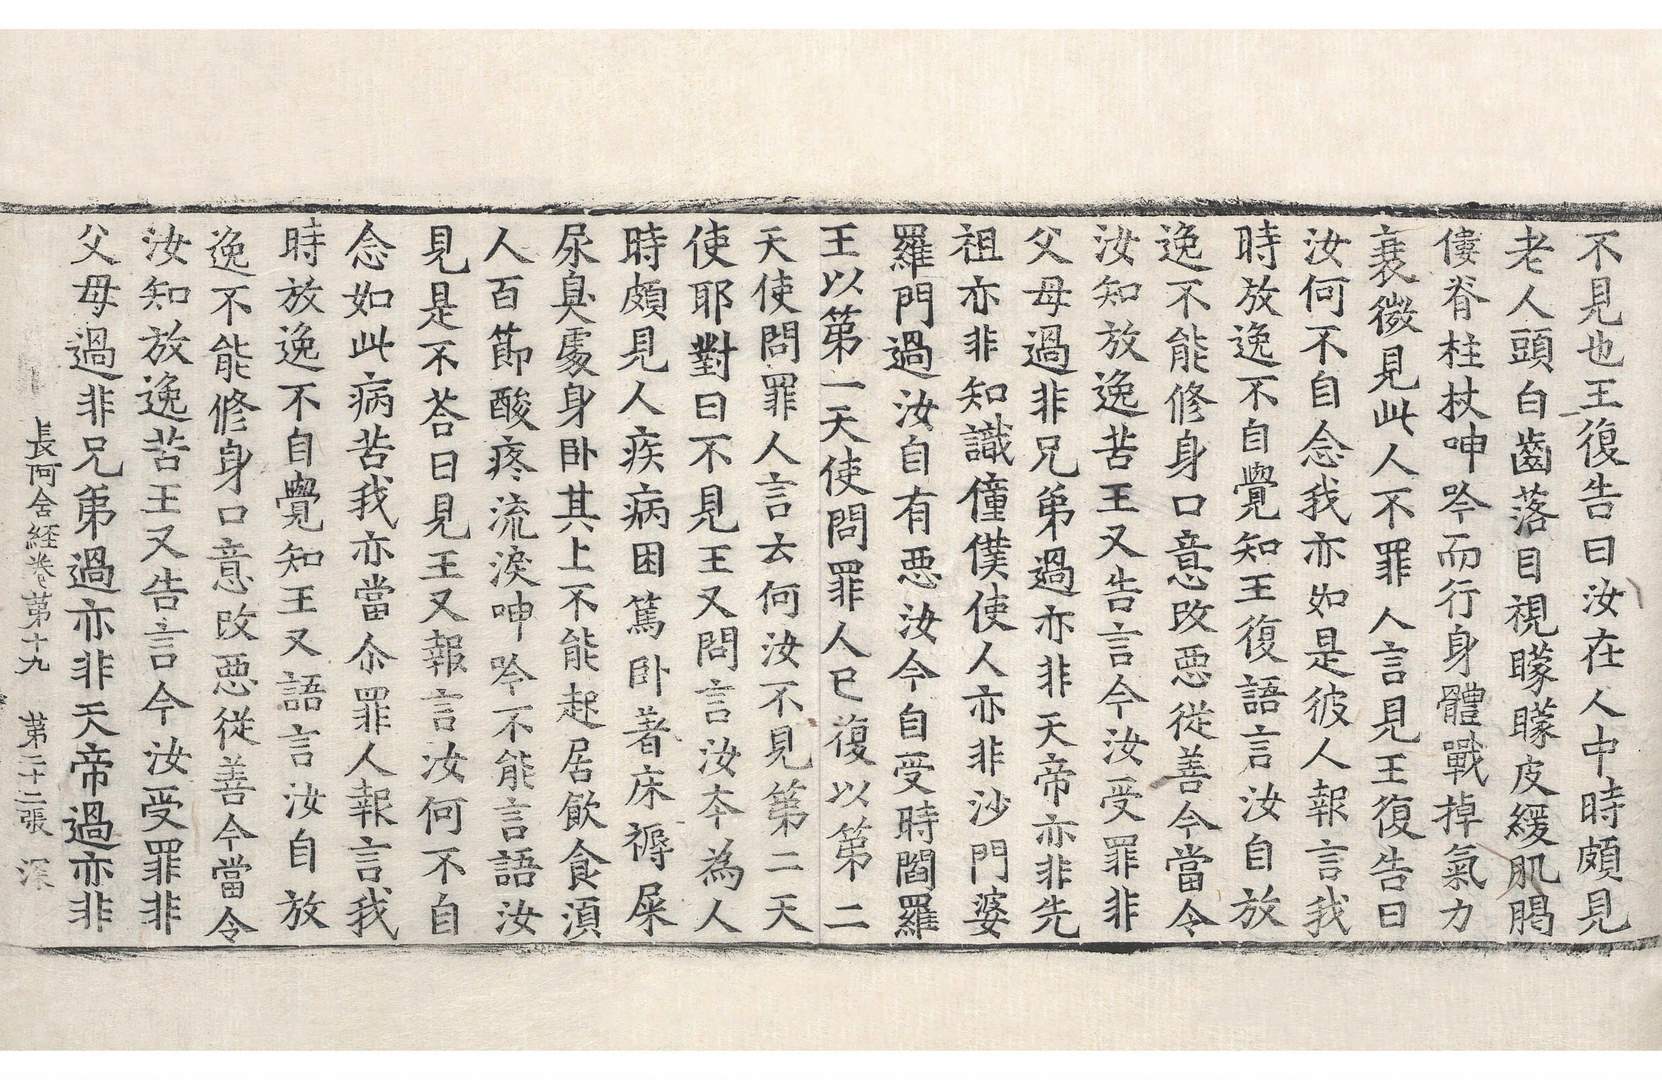 不見也王復告曰汝在人中時頗見
老人頭白齒落目視矇矇皮緩肌𦢊
僂脊柱杖呻吟而行身體戰掉氣力
衰微見此人不罪人言見王復告曰
汝何不自念我亦如是彼人報言我
時放逸不自覺知王復語言汝自放
逸不能修身口意改惡從善今當令
汝知放逸苦王又告言今汝受罪非
父母過非兄弟過亦非天帝亦非先
祖亦非知識僮僕使人亦非沙門婆
羅門過汝自有惡汝今自受時閻羅
王以第一天使問罪人已復以第二
天使問罪人言云何汝不見第二天
使耶對曰不見王又問言汝夲為人
時頗見人疾病困篤卧著床褥屎
尿臭處身卧其上不能起居飲食湏
人百節酸疼流淚呻吟不能言語汝
見是不荅曰見王又報言汝何不自
念如此病苦我亦當尒罪人報言我
時放逸不自覺知王又語言汝自放
逸不能修身口意改惡從善今當令
汝知放逸苦王又告言今汝受罪非
父母過非兄弟過亦非天帝過亦非
長阿含経卷苐十九　第二十二張　深